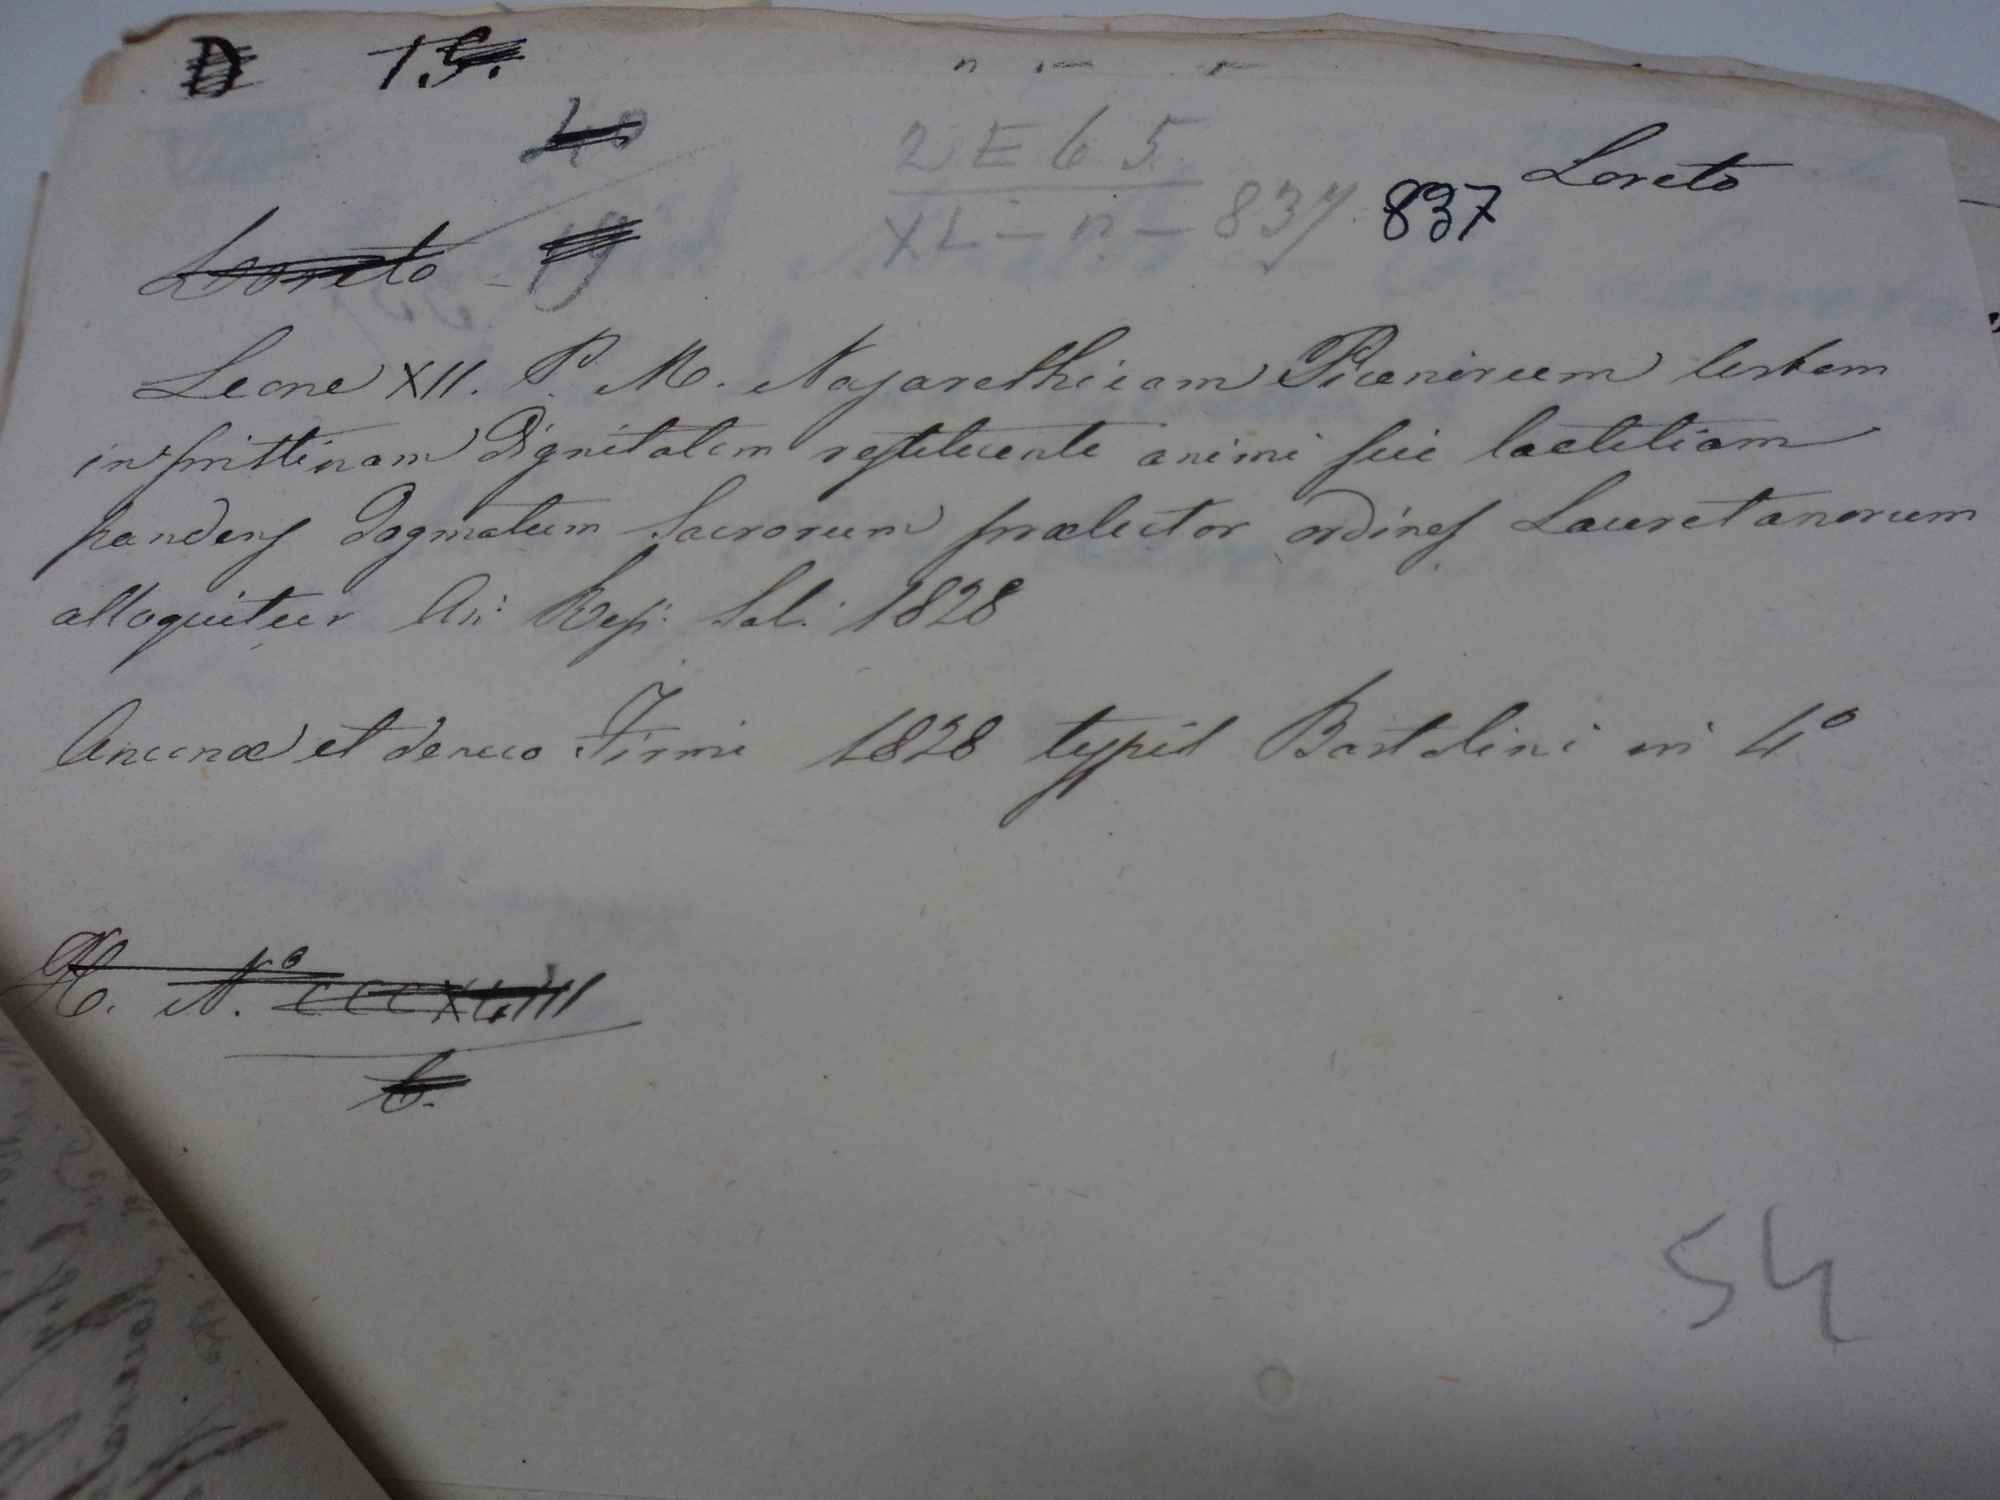 D T.S.
40
2 E 6 5
Loreto
XL - n - 837 837
Loreto 19
Leone XII. P. M. Nazarethicam Picenirum Urbem
in pristinam dignitatem restituente animi sui laetitiam
pandens dogmatum Sacrorum praelector ordines Lauretanorum
alloquitur An: Rep: Sal: 1828
Anconae et denuo Firmi 1828 typis Bartolini in 4°
H. N.° CCCXLIII
6.
54